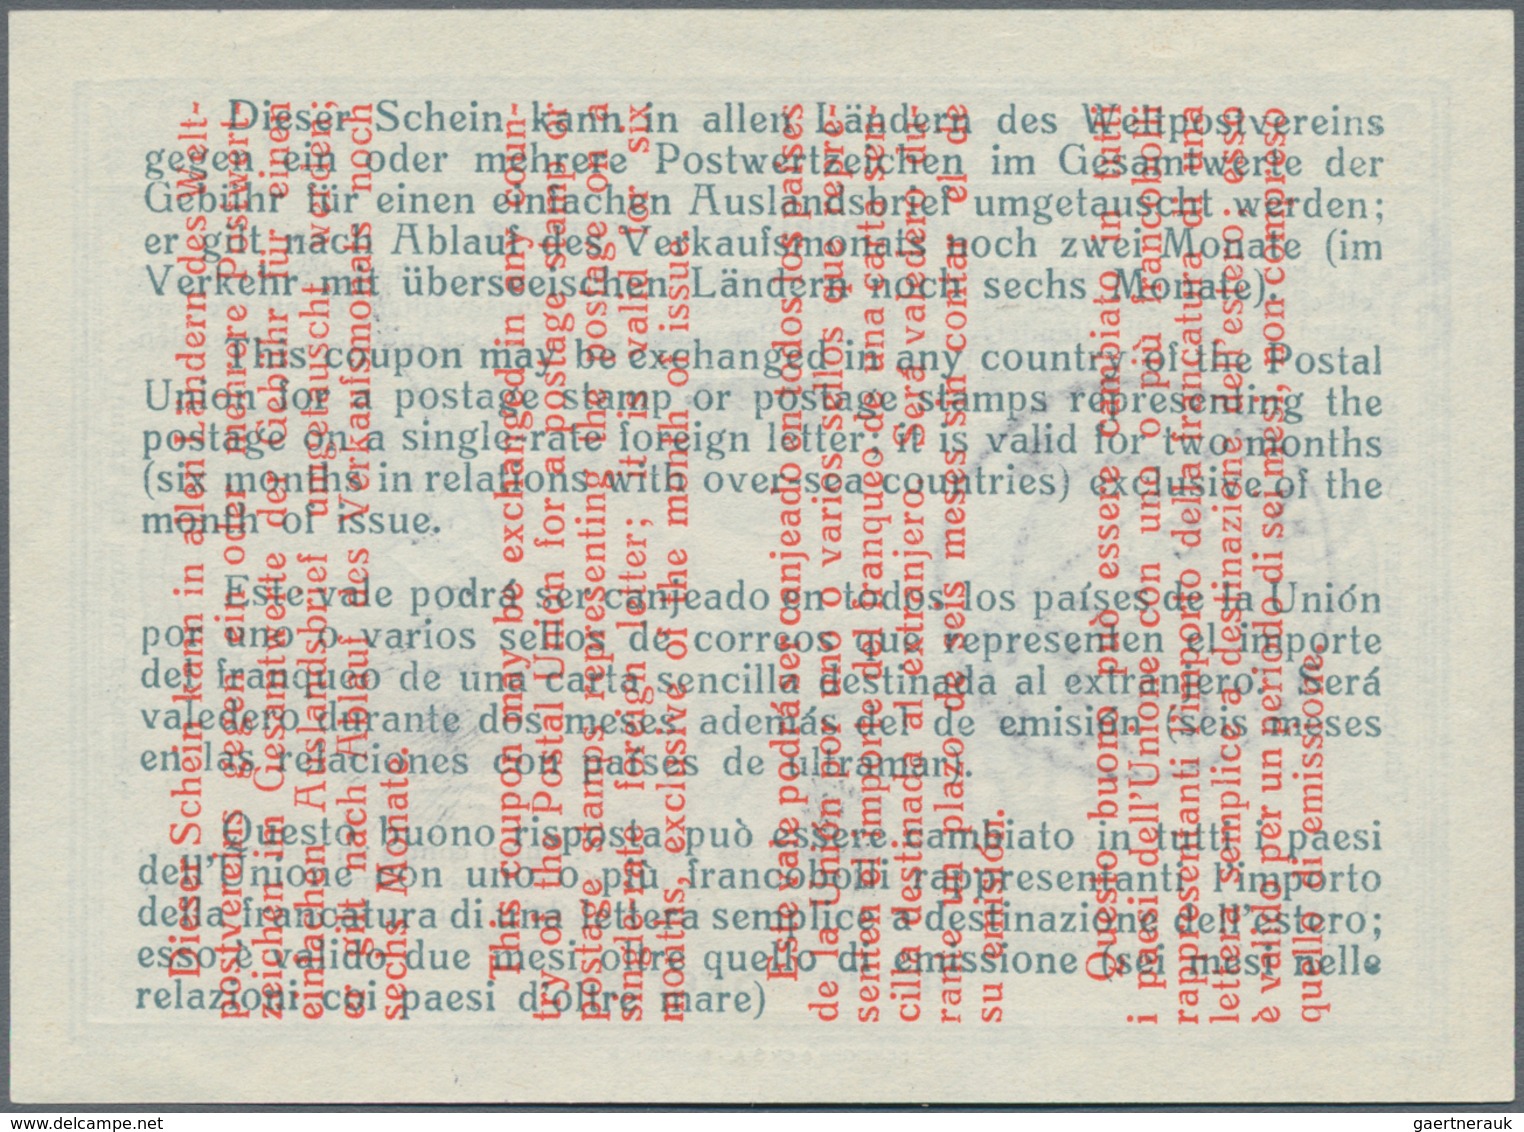 Dieser Schein kann in allen Ländern des Weltpostvereins
gegen ein oder mehrere Postwertzeichen im Gesamtwerte der
Gebühr für einen einfachen Auslandsbrief umgetauscht werden;
er gilt nach Ablauf des Verkaufsmonats noch zwei Monate (im
Verkehr mit überseeischen Ländern noch sechs Monate).
This coupon may be exchanged in any country of the Postal
Union for a postage stamp or postage stamps representing the
postage on a single-rate foreign letter; it is valid for two months
(six months in relations with over-sea countries) exclusive of the
month of issue.
Este vale podrá ser canjeado en todos los países de la Unión
por uno o varios sellos de correos que representen el importe
del franqueo de una carta sencilla destinada al extranjero. Será
valedero durante dos meses además del de emisión (seis meses
en las relaciones con países de ultramar).
Questo buono risposta può essere cambiato in tutti i paesi
dell'Unione con uno o più francobolli rappresentanti l'importo
della francatura di una lettera semplice a destinazione dell'estero;
esso è valido due mesi oltre quello di emissione (sei mesi nelle
relazioni coi paesi d'oltre mare)
Dieser Schein kann in allen Ländern des Welt-
postvereins gegen ein oder mehrere Postwert-
zeichen im Gesamtwerte der Gebühr für einen
einfachen Auslandsbrief umgetauscht werden;
er gilt nach Ablauf des Verkaufsmonats noch
sechs Monate.
This coupon may be exchanged in any coun-
try of the Postal Union for a postage stamp or
postage stamps representing the postage on a
single-rate foreign letter; it is valid for six
months, exclusive of the month of issue.
Este vale podrá ser canjeado en todos los países
de la Unión por uno o varios sellos que repre-
senten el importe del franqueo de una carta sen-
cilla destinada al extranjero. Será valedero du-
rante un plazo de seis meses sin contar el de
su emisión.
Questo buono può essere cambiato in tutti
i paesi dell'Unione con uno o più francobolli
rappresentanti l'importo della francatura di una
lettera semplice a destinazione dell'estero; esso
è valido per un periodo di sei mesi, non compreso
quello di emissione.
delcampe.net
gaertnerauk